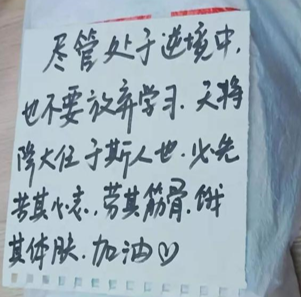 尽管处于逆境中,
也不要放弃学习.天将
降大任于斯人也.必先
苦其心志,劳其筋骨.饿
其体肤.加油♡